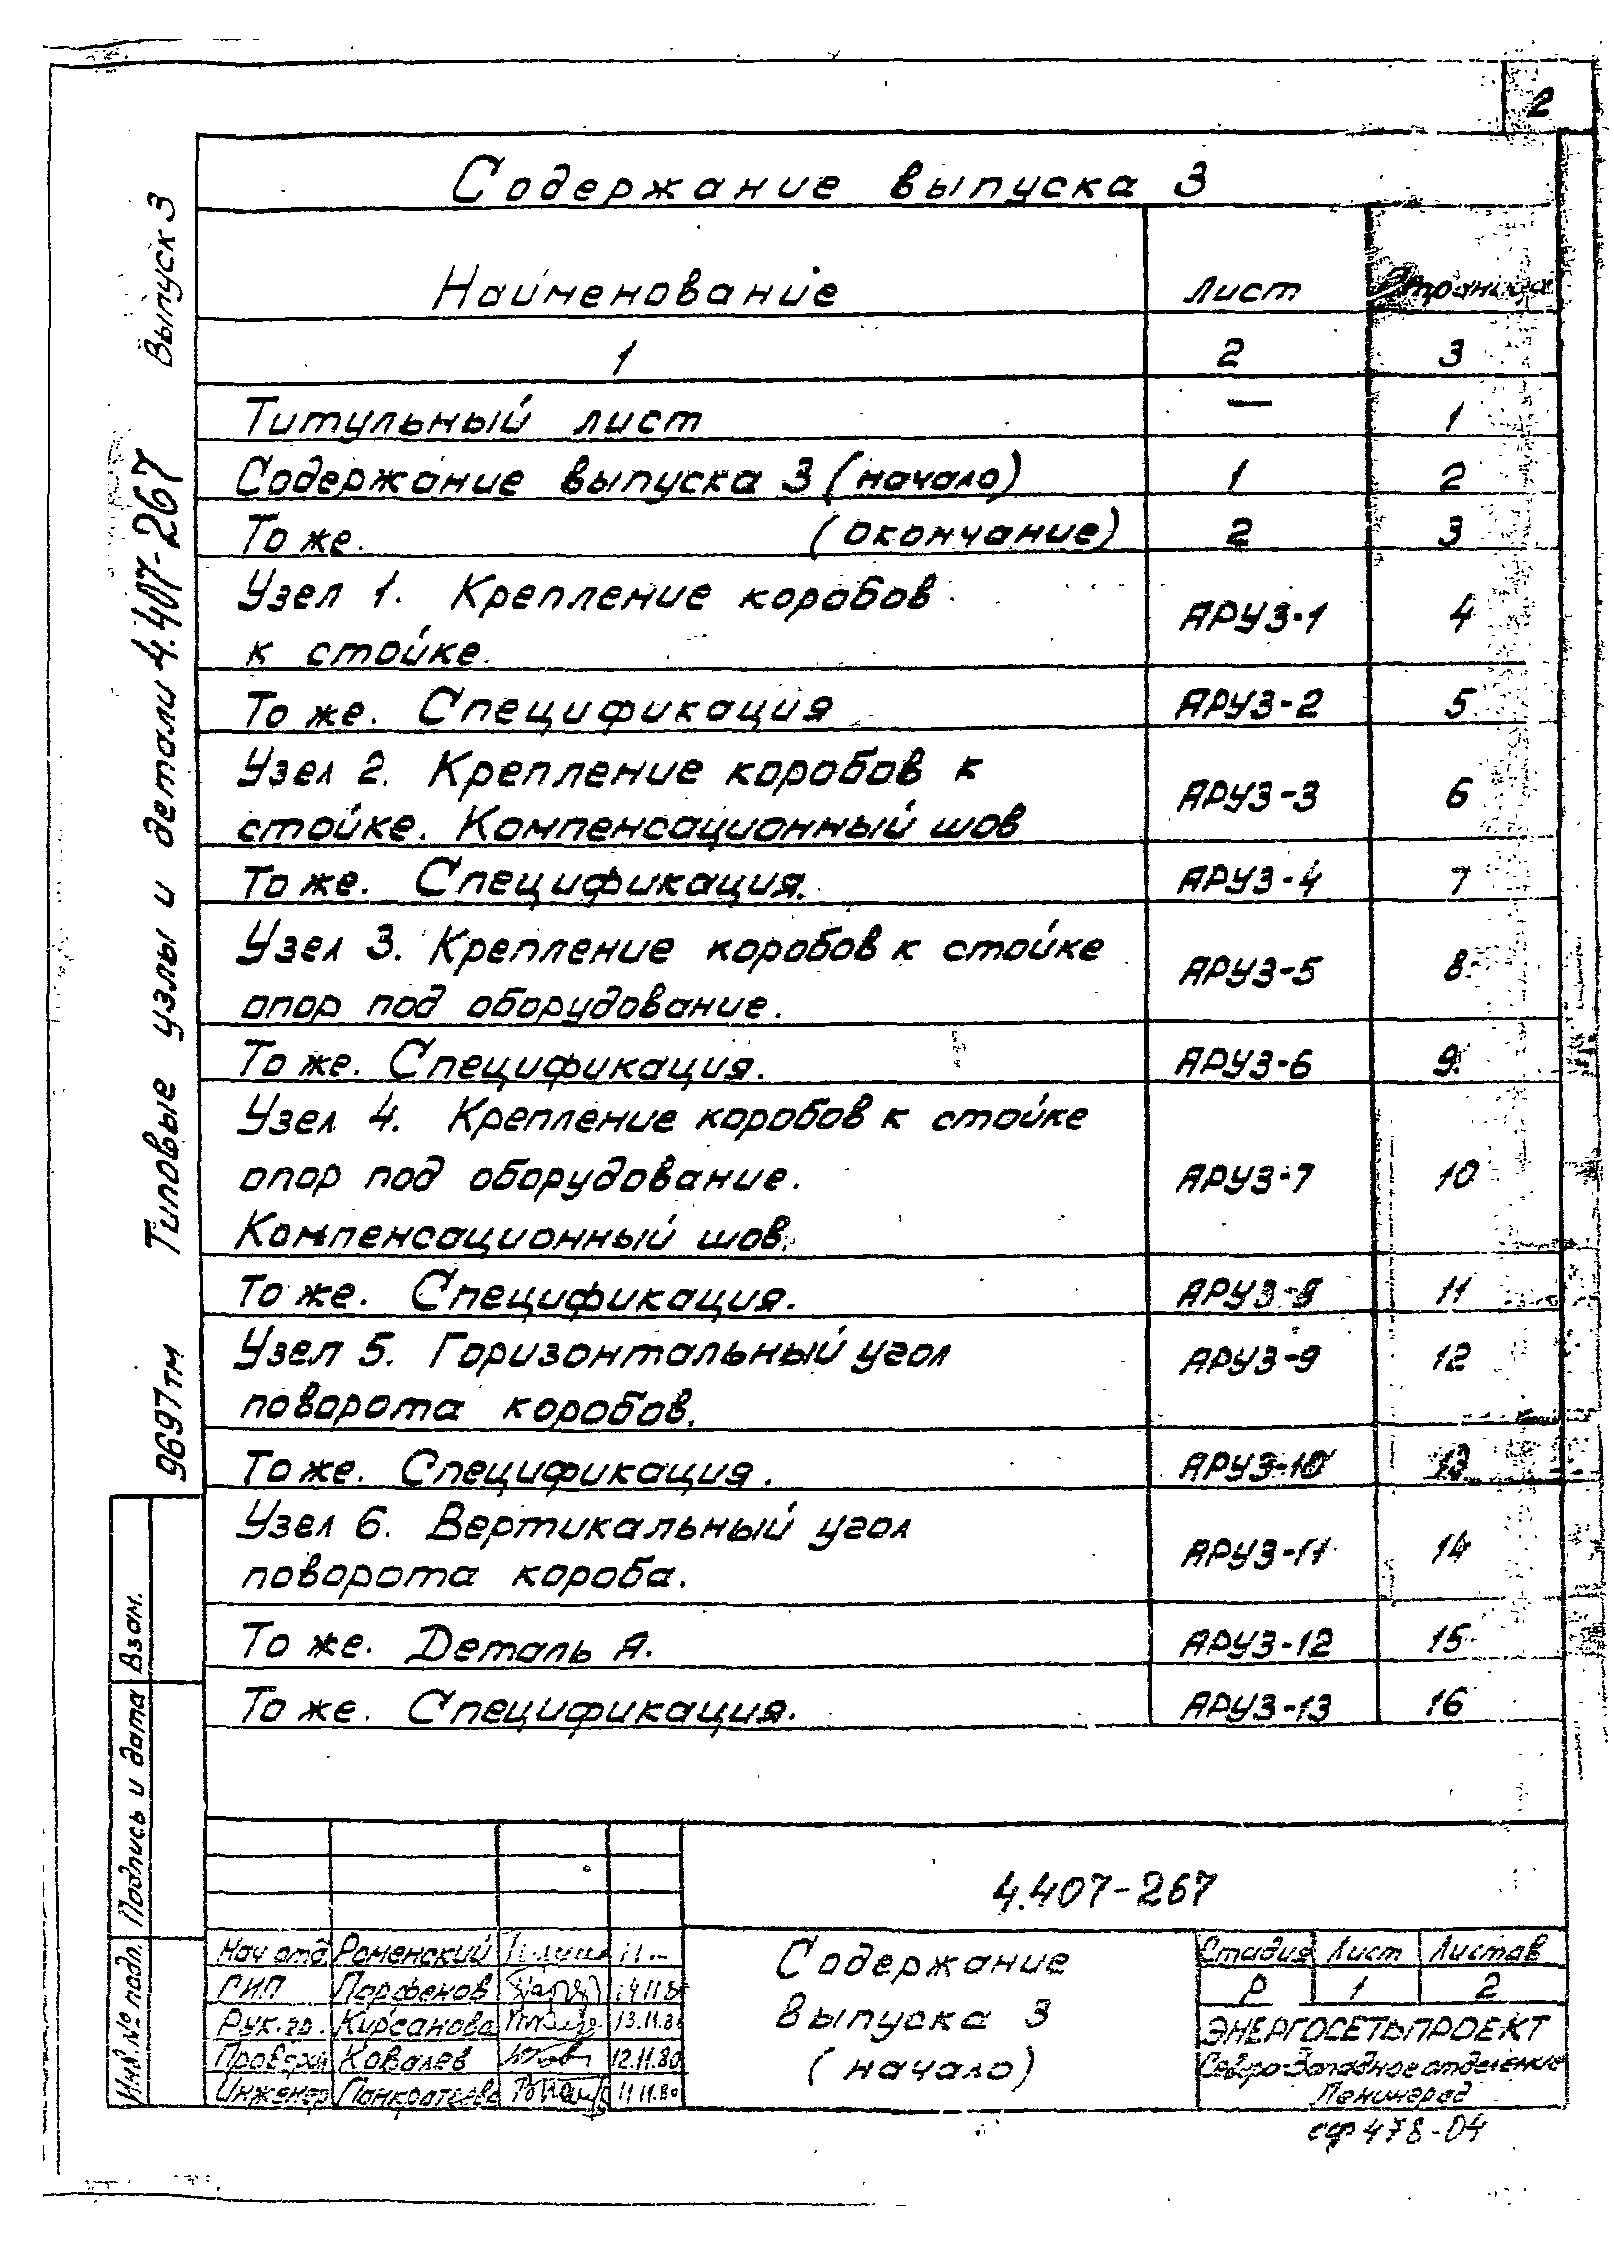 2
Содержание выпуска 3
Наименование Лист Страница
1 2 3
Титульный лист — 1
Содержание выпуска 3 (начало) 1 2
То же. (окончание) 2 3
Узел 1. Крепление коробов
к стойке. АРУЗ-1 4
То же. Спецификация АРУЗ-2 5
Узел 2. Крепление коробов к
стойке. Компенсационный шов АРУЗ-3 6
То же. Спецификация. АРУЗ-4 7
Узел 3. Крепление коробов к стойке
опор под оборудование. АРУЗ-5 8
То же. Спецификация. АРУЗ-6 9
Узел 4. Крепление коробов к стойке
опор под оборудование. АРУЗ-7 10
Компенсационный шов.
То же. Спецификация. АРУЗ-8 11
Узел 5. Горизонтальный угол АРУЗ-9 12
поворота коробов.
То же. Спецификация. АРУЗ-10 13
Узел 6. Вертикальный угол
поворота короба. АРУЗ-11 14
То же. Деталь А. АРУЗ-12 15
То же. Спецификация. АРУЗ-13 16
9697тм Типовые узлы и детали 4.407-267 Выпуск 3
Инв.№ подл. Подпись и дата Взам.
4.407-267
Нач отд Роменский
ГИП Парфенов
Рук.гр. Кирсанова
Проверил Ковалев 12.11.80
Инженер Панкратьева 11.11.80
Содержание
выпуска 3
(начало)
Стадия Лист Листов
Р 1 2
ЭНЕРГОСЕТЬПРОЕКТ
Северо-Западное отделение
Ленинград
сф 478-04